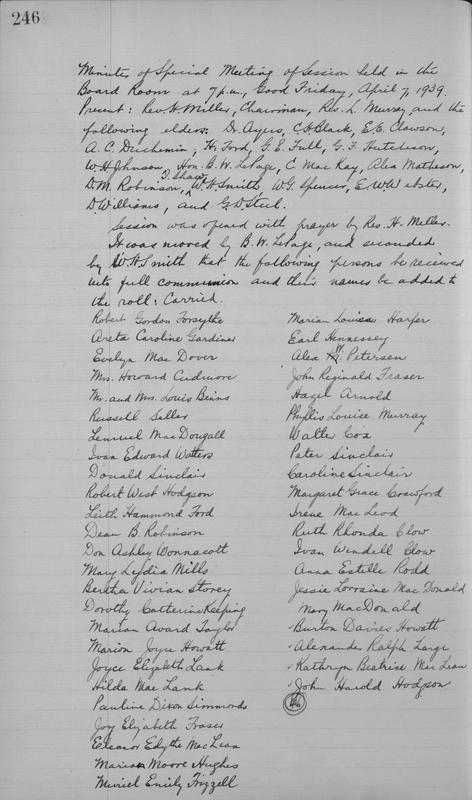 246
Minutes of Special Meeting of Session held in the
Board Room at 7 p.m., Good Friday, April 7, 1939.
Present: Rev. H. Miller, Chairman, Rev. L. Murray, and the
following elders: Dr. Ayers, C.H. Black, E.E. Clawson,
A. C. Duchemin, H. Ford, G. E. Full, G. F. Hutcheson,
W.H. Johnson, Hon. B. W. LePage, C. MacKay, Alex Matheson,
D.M. Robinson, T. Shaw, W.H. Smith, W.G. Spencer, E.W. Webster,
D Williams, and G.D. Steel.
Session was opened with prayer by Rev. H. Meller.
It was moved by B. W. LePage, and seconded
by W.H. Smith that the following persons be received
into full communion and their names be added to
the roll: Carried.
Robert Gordon Forsythe
Areta Caroline Gardiner
Evelyn MacDover
Mrs. Howard Cudmore
Mr. and Mrs. Louis Binns
Russell Seller
Lemuel MacDougall
Ivan Edward Watters
Donald Sinclair
Robert West Hodgson
Leith Hammond Ford
Dean B. Robinson
Don Ashley Wonnacott
Mary Lydia Mills
Bertha Vivian Storey
Dorothy Catherine Keeping
Marian Award Taylor
Marion Joyce Howatt
Joyce Elizabeth Lank
Hilda Mae Lank
Pauline Dixon Simmonds
Joy Elizabeth Fraser
Eleanor Edythe MacLean
Marion Moore Hughes
Muriel Emily Frizzell
Marian Louisa Harper
Earl Hennessey
Alex W. Petersen
John Reginald Fraser
Hazel Arnold
Phyllis Louise Murray
Walter Cox
Peter Sinclair
Caroline Sinclair
Margaret Grace Crawford
Irene MacLeod
Ruth Rhonda Clow
Ivan Wendell Clow
Anna Estelle Rodd
Jessie Lorraine MacDonald
Mary MacDonald
Burton Davies Howatt
Alexander Ralph Large
Kathryn Beatrice MacLean
John Harold Hodgson
46